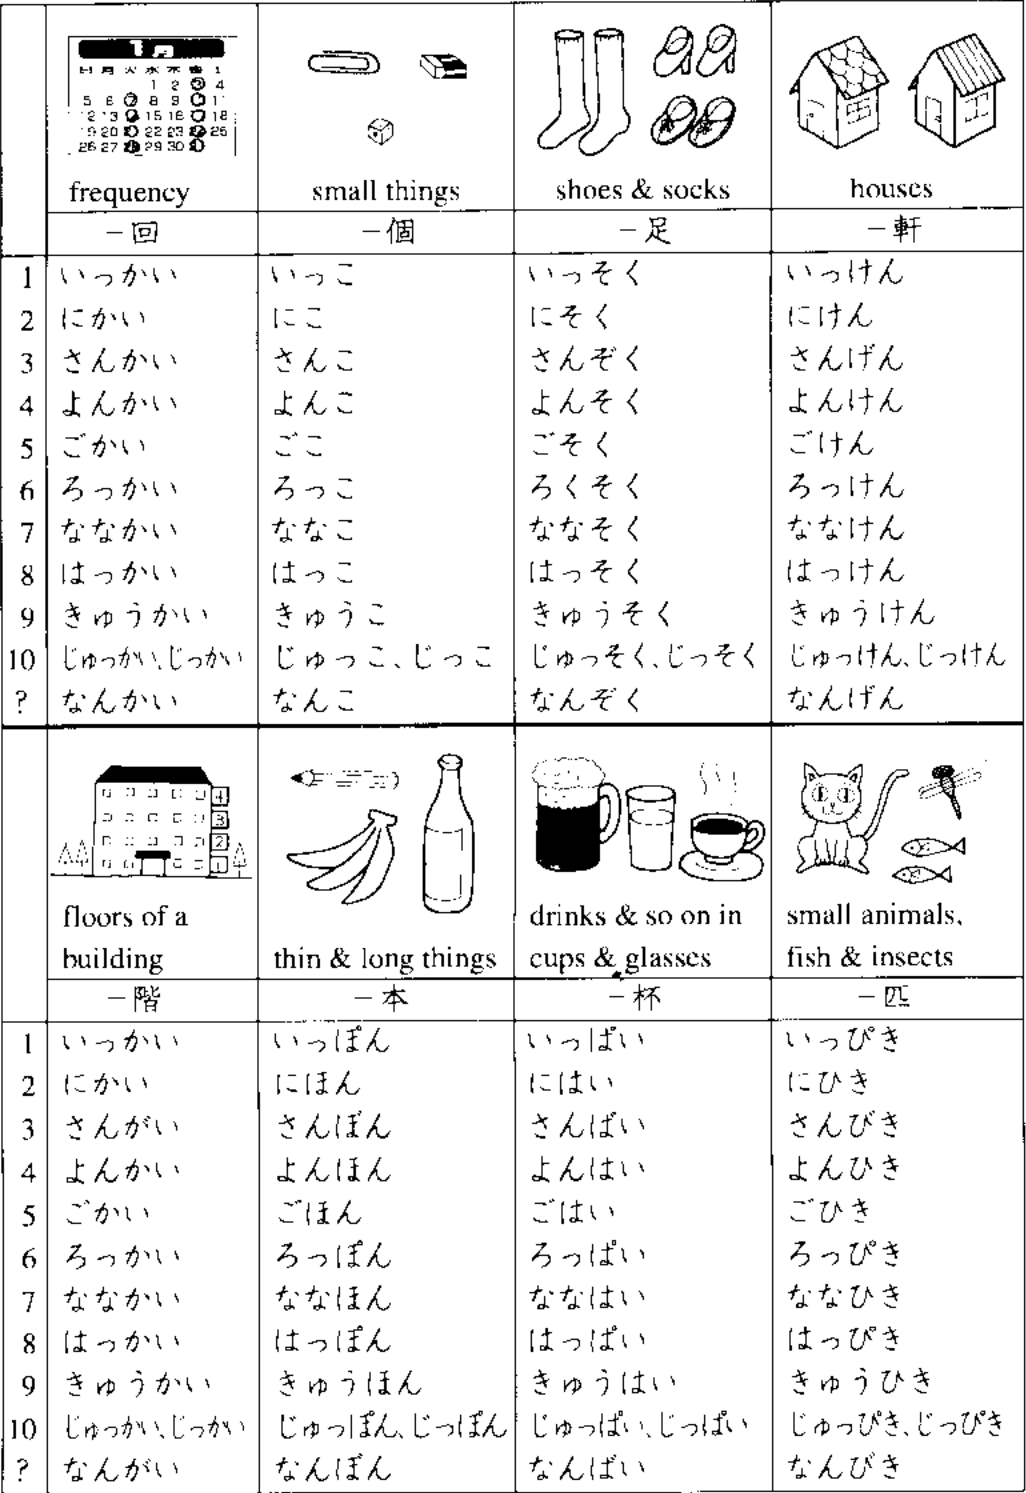 1月
日 月 火 水 木 金 土
1 2 3 4
5 6 7 8 9 10 11
12 13 14 15 16 17 18
19 20 21 22 23 24 25
26 27 28 29 30 31
frequency	small things	shoes & socks	houses
－回	－個	－足	－軒
1	いっかい	いっこ	いっそく	いっけん
2	にかい	にこ	にそく	にけん
3	さんかい	さんこ	さんぞく	さんげん
4	よんかい	よんこ	よんそく	よんけん
5	ごかい	ごこ	ごそく	ごけん
6	ろっかい	ろっこ	ろくそく	ろっけん
7	ななかい	ななこ	ななそく	ななけん
8	はっかい	はっこ	はっそく	はっけん
9	きゅうかい	きゅうこ	きゅうそく	きゅうけん
10	じゅっかい、じっかい	じゅっこ、じっこ	じゅっそく、じっそく	じゅっけん、じっけん
?	なんかい	なんこ	なんぞく	なんげん
4
3
2
1
floors of a building	thin & long things	drinks & so on in cups & glasses	small animals, fish & insects
－階	－本	－杯	－匹
1	いっかい	いっぽん	いっぱい	いっぴき
2	にかい	にほん	にはい	にひき
3	さんがい	さんぼん	さんばい	さんびき
4	よんかい	よんほん	よんはい	よんひき
5	ごかい	ごほん	ごはい	ごひき
6	ろっかい	ろっぽん	ろっぱい	ろっぴき
7	ななかい	ななほん	ななはい	ななひき
8	はっかい	はっぽん	はっぱい	はっぴき
9	きゅうかい	きゅうほん	きゅうはい	きゅうひき
10	じゅっかい、じっかい	じゅっぽん、じっぽん	じゅっぱい、じっぱい	じゅっぴき、じっぴき
?	なんがい	なんぼん	なんばい	なんびき